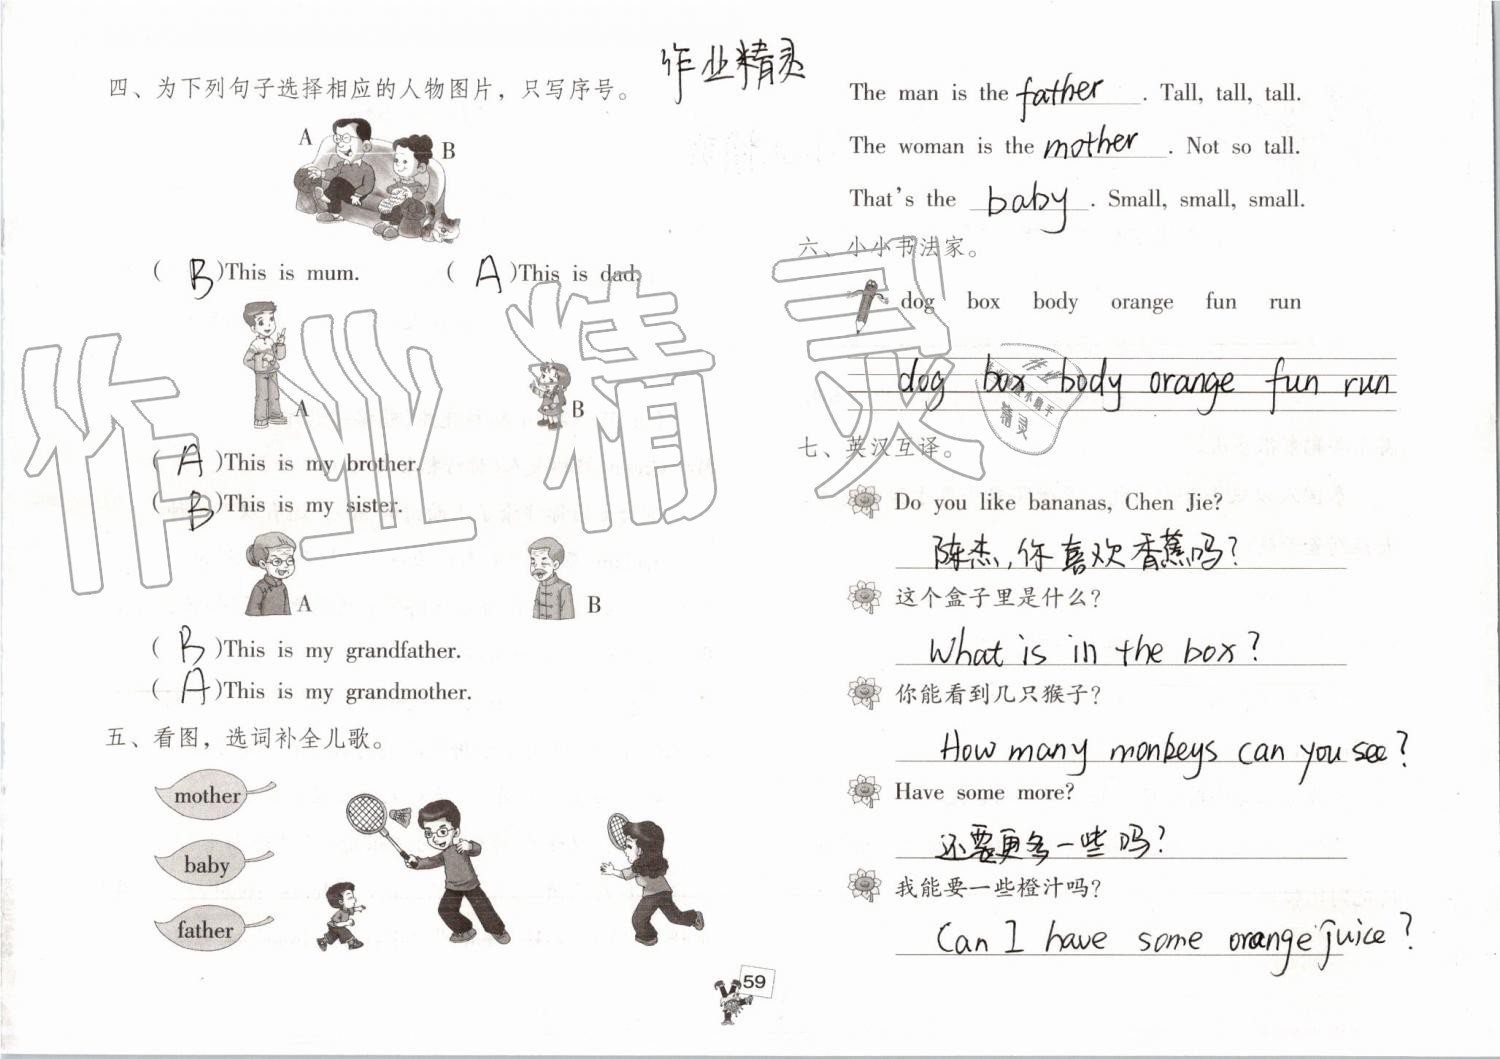 作业精灵
四、为下列句子选择相应的人物图片，只写序号。
A
B
( B )This is mum. ( A )This is dad.
A
B
( A )This is my brother.
( B )This is my sister.
A
B
( B )This is my grandfather.
( A )This is my grandmother.
五、看图，选词补全儿歌。
mother
baby
father
The man is the father. Tall, tall, tall.
The woman is the mother. Not so tall.
That's the baby. Small, small, small.
六、小小书法家。
dog box body orange fun run
dog box body orange fun run
七、英汉互译。
Do you like bananas, Chen Jie?
陈杰,你喜欢香蕉吗?
这个盒子里是什么?
What is in the box?
你能看到几只猴子?
How many monkeys can you see?
Have some more?
还要更多一些吗?
我能要一些橙汁吗?
Can I have some orange juice?
59
作业精灵
作业
精灵